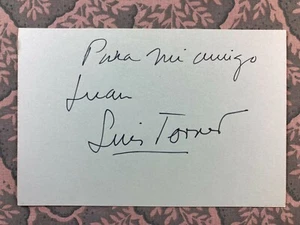 Para mi amigo
Juan
Luis Torner